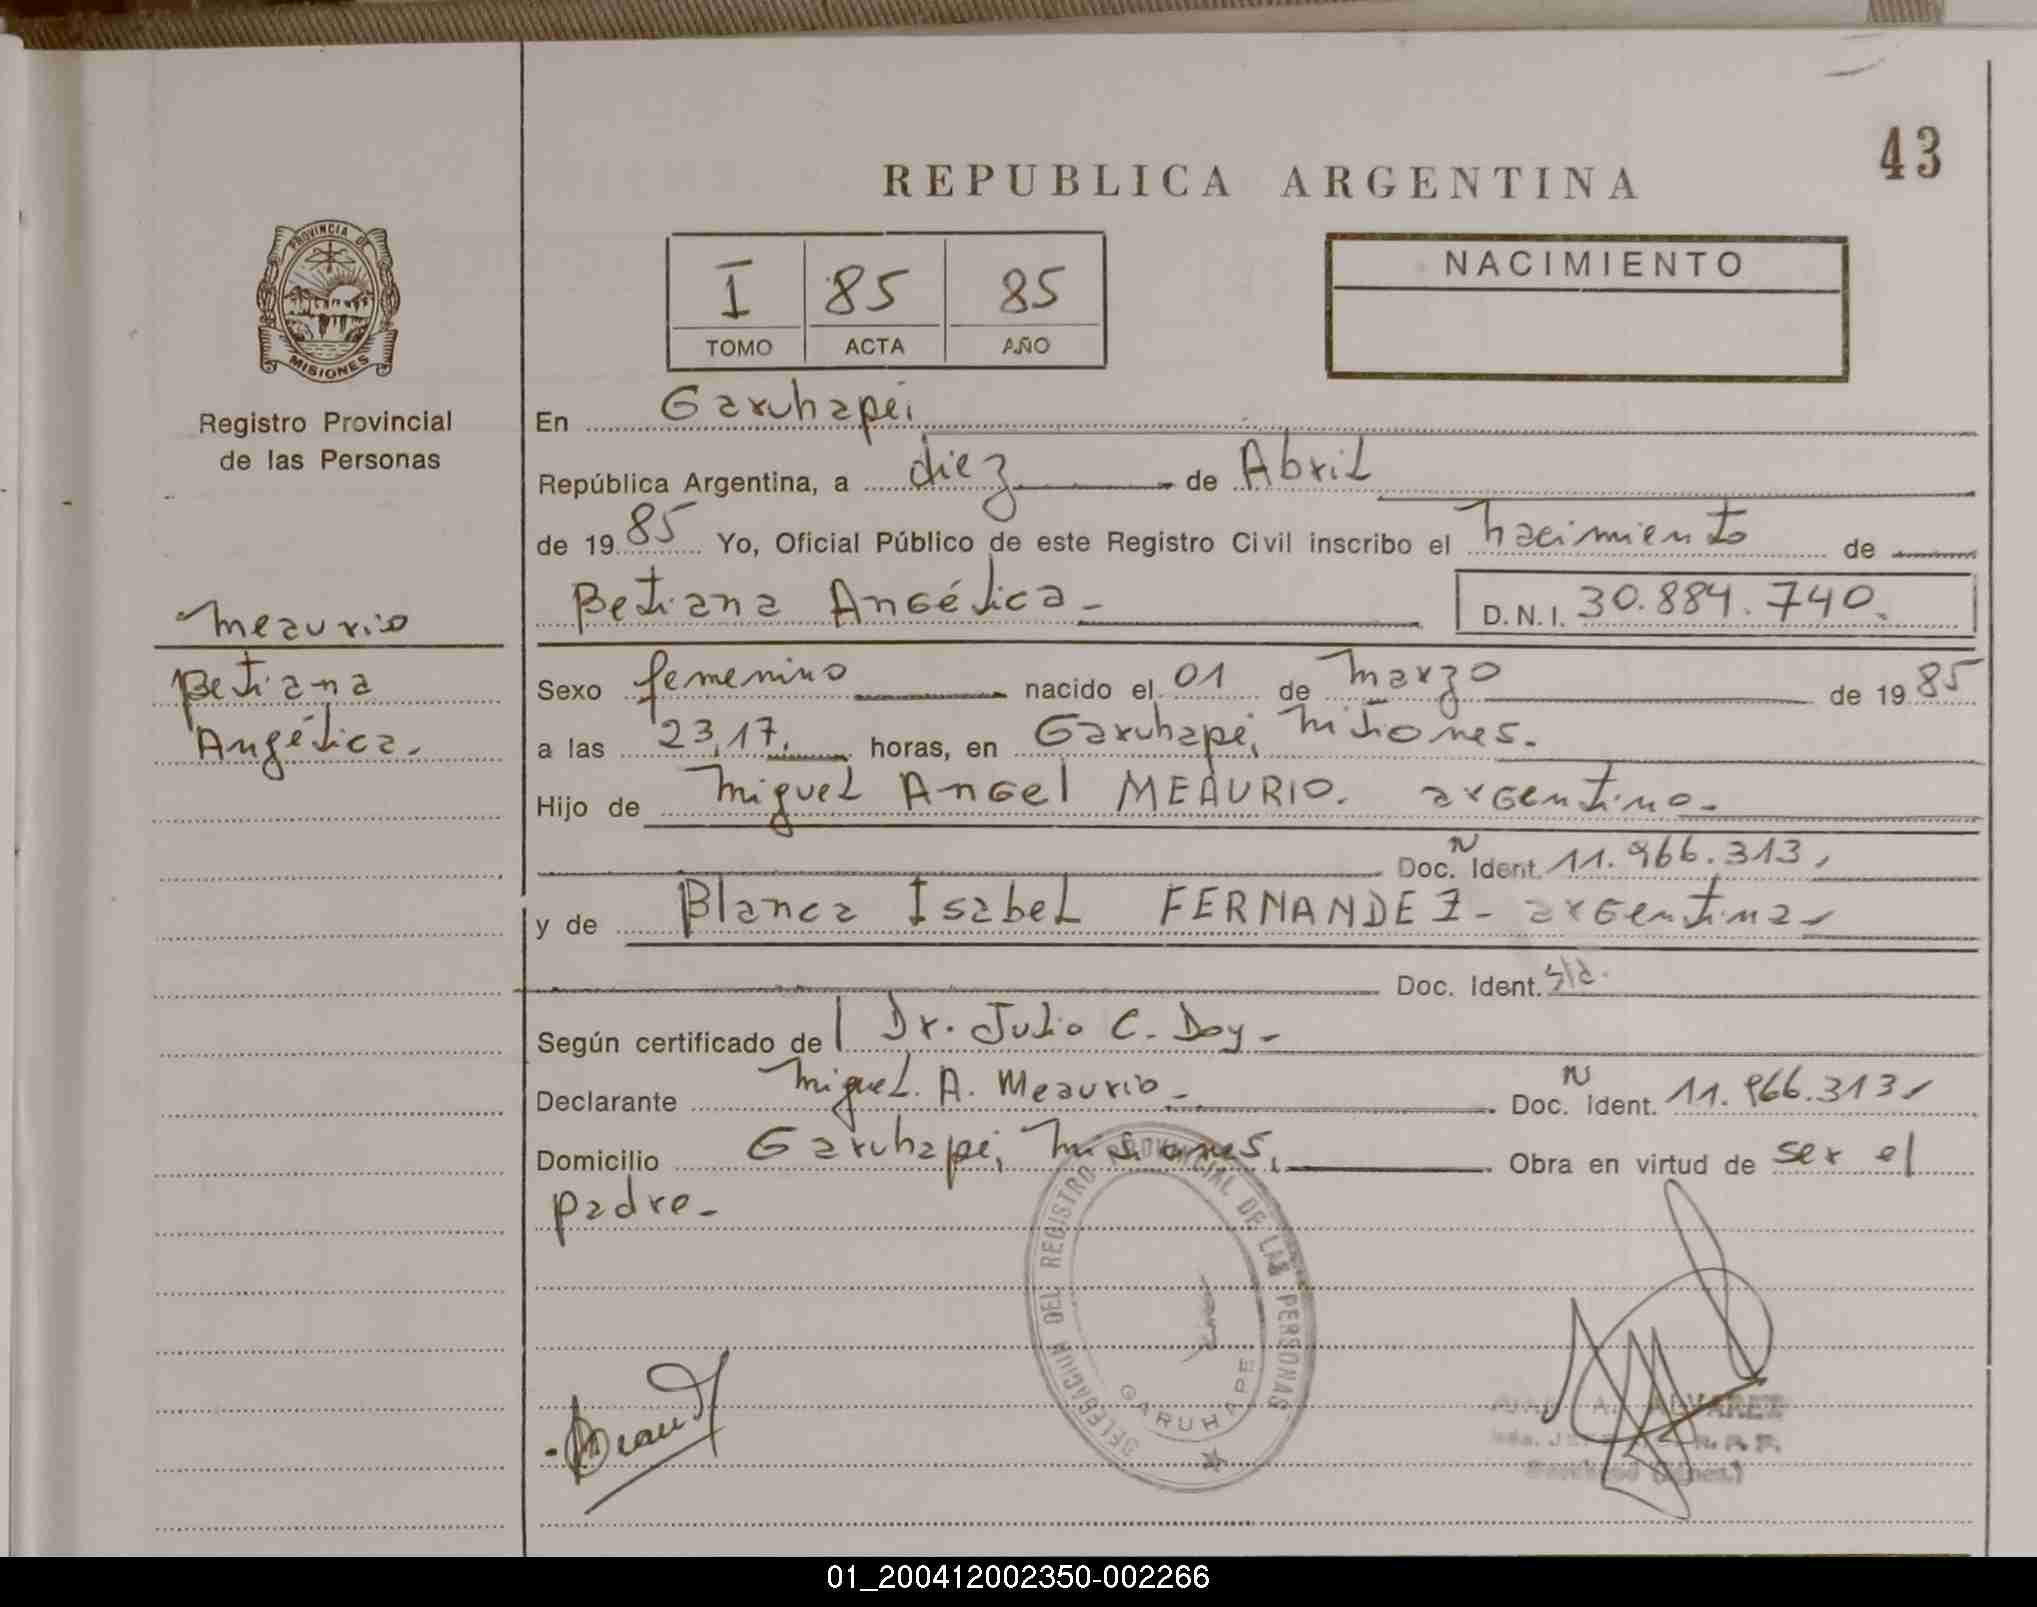 43
REPUBLICA ARGENTINA
PROVINCIA DE
MISIONES
Registro Provincial
de las Personas
I 85 85
TOMO ACTA AÑO
NACIMIENTO
En Garuhapei
República Argentina, a diez de Abril
de 1985 Yo, Oficial Público de este Registro Civil inscribo el nacimiento de
Betiana Angélica - D.N.I. 30.884.740.
Meaurio
Betiana
Angélica.
Sexo femenino nacido el 01 de Marzo de 1985
a las 23,17. horas, en Garuhapei, Misiones.
Hijo de Miguel Angel MEAURIO. argentino-
Doc. N Ident. 11.966.313,
y de Blanca Isabel FERNANDEZ - argentina-
Doc. Ident. s/d.
Según certificado de Dr. Julio C. Doy-
Declarante Miguel. A. Meaurio- Doc. N Ident. 11.966.313,
Domicilio Garuhapei, Misiones, Obra en virtud de ser el
padre-
DELEGACION DEL REGISTRO PROVINCIAL DE LAS PERSONAS
GARUHAPE
A. ALVAREZ
01_200412002350-002266